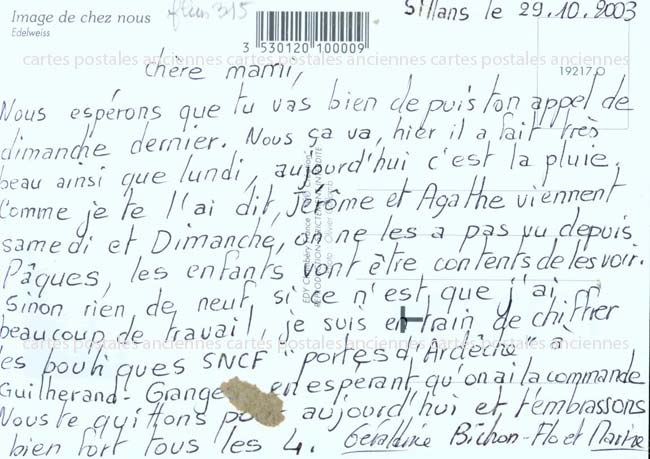 Image de chez nous
Edelweiss
Sillans le 29.10.2003
3 530120 100009
cartes postales anciennes cartes postales anciennes cartes postales anciennes
19217 O
chère mami,
Nous espérons que tu vas bien depuis ton appel de
dimanche dernier. Nous ça va, hier il a fait très
beau ainsi que lundi, aujourd'hui c'est la pluie.
Comme je te l'ai dit, Jérôme et Agathe viennent
samedi et Dimanche, on ne les a pas vu depuis
Pâques, les enfants vont être contents de les voir.
Sinon rien de neuf, si ce n'est que j'ai
beaucoup de travail, je suis en train de chiffrer
cartes postales anciennes cartes postales anciennes cartes postales anciennes
les boutiques SNCF "portes d'Ardèche" à
Guilherand-Grange en esperant qu'on ai la commande
Nous te quittons aujourd'hui et t'embrassons
bien fort tous les 4. Géraldine Bichon-Flo et Marine